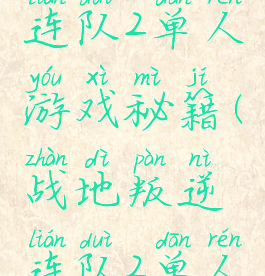 lián duì dān rén
连队2单人
yóu xì mì jí
游戏秘籍(
zhàn dì pàn nì
战地叛逆
lián duì dān rén
连队2单人